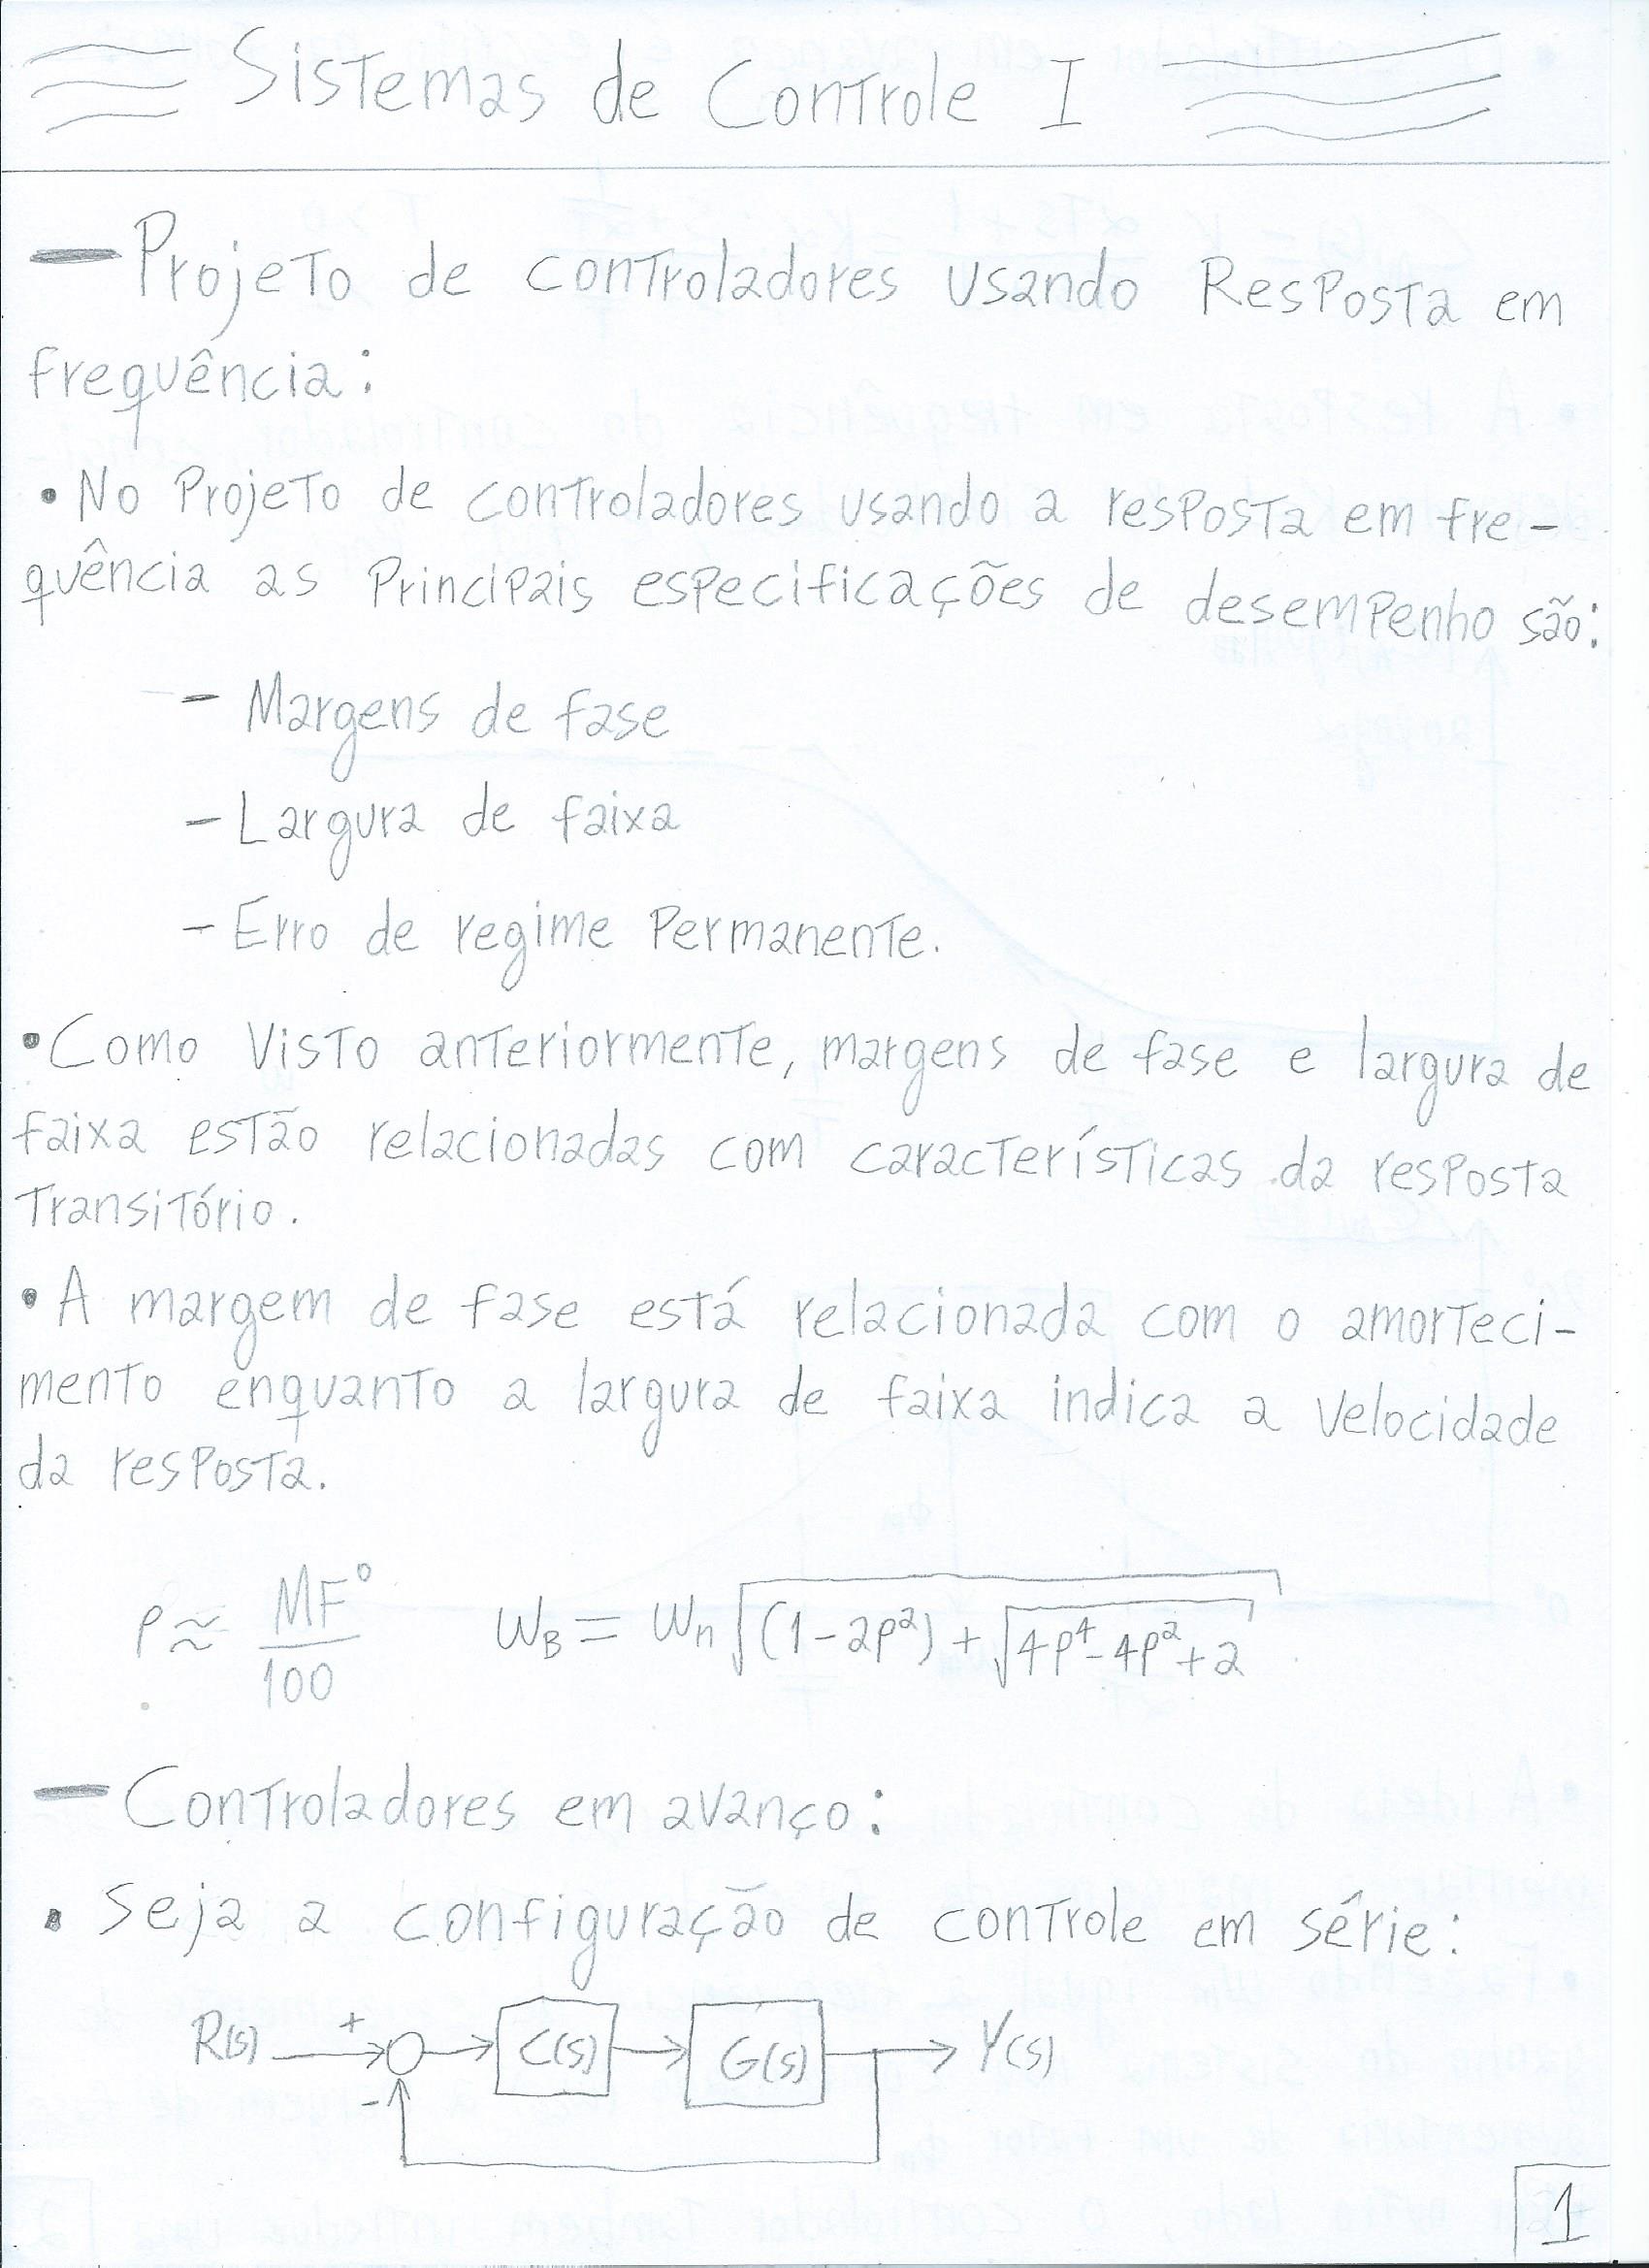 Sistemas de Controle I
— Projeto de controladores usando Resposta em
frequência:
• No Projeto de controladores usando a resposta em fre-
quência as Principais especificações de desempenho são:
- Margens de fase
- Largura de faixa
- Erro de regime Permanente.
• Como Visto anteriormente, margens de fase e largura de
faixa estão relacionadas com características da resposta
Transitório.
• A margem de fase está relacionada com o amorteci-
mento enquanto a largura de faixa indica a Velocidade
da resposta.
ρ ≈ MF°/100    WB = Wn √((1-2ρ²) + √(4ρ⁴-4ρ²+2))
— Controladores em avanço:
• Seja a configuração de controle em série:
R(s) + - C(s) G(s) Y(s)
1